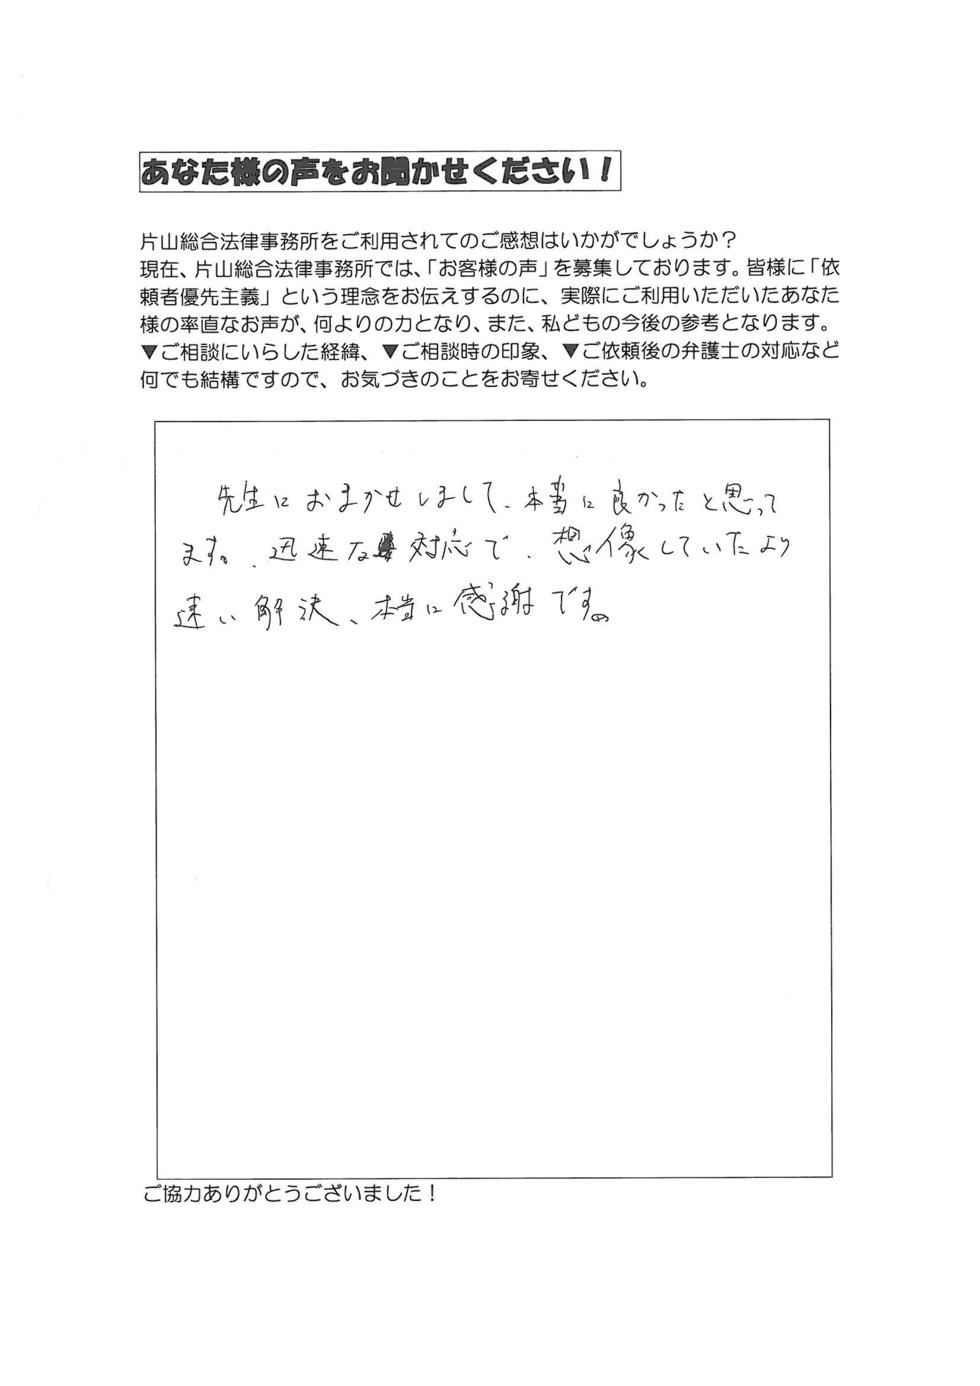 あなた様の声をお聞かせください！
片山総合法律事務所をご利用されてのご感想はいかがでしょうか？
現在、片山総合法律事務所では、「お客様の声」を募集しております。皆様に「依
頼者優先主義」という理念をお伝えするのに、実際にご利用いただいたあなた
様の率直なお声が、何よりの力となり、また、私どもの今後の参考となります。
▼ご相談にいらした経緯、▼ご相談時の印象、▼ご依頼後の弁護士の対応など
何でも結構ですので、お気づきのことをお寄せください。
先生におまかせしまして、本当に良かったと思って
ます。迅速な対応で、想像していたより
速い解決、本当に感謝です。
ご協力ありがとうございました！